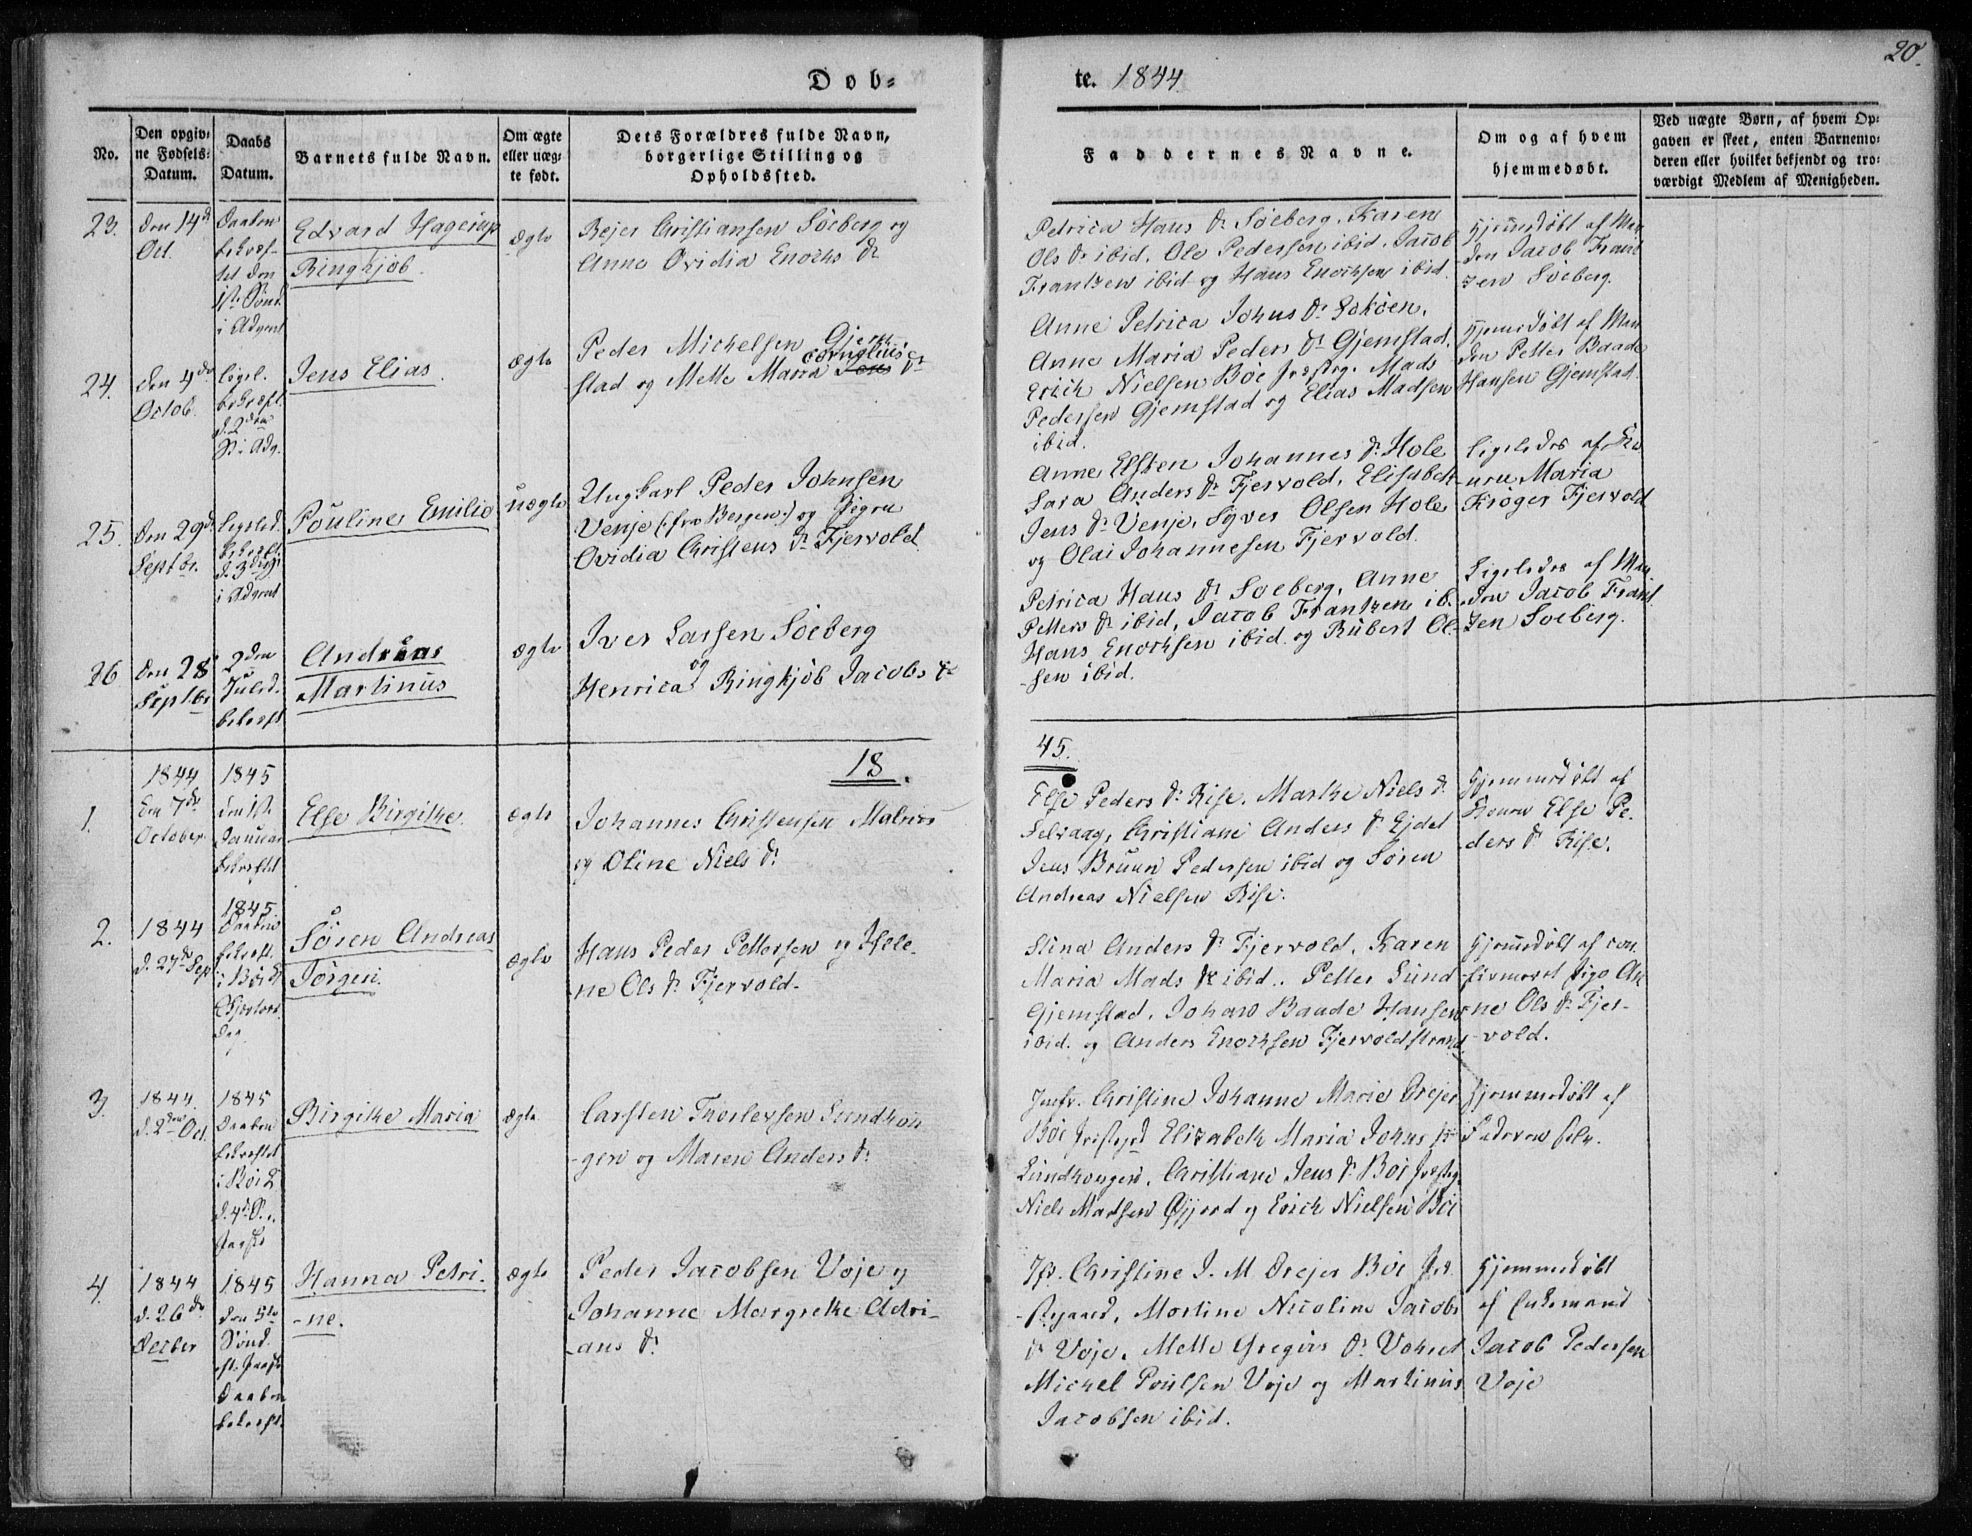 20.
Døb-
te. 1844
No.
Den opgiv-
ne Fødsels-
Datum.
Daabs
Datum.
Barnets fulde Navn.
Om ægte
eller uæg-
te født.
Dets Forældres fulde Navn,
borgerlige Stilling og
Opholdssted.
Faddernes Navne.
Om og af hvem
hjemmedøbt.
Ved uægte Børn, af hvem Op-
gaven er skeet, enten Barnemo-
deren eller hvilket bekjendt og tro-
værdigt Medlem af Menigheden.
23.
Den 14d
Oct.
Daaben
bekræf-
tet den
1ste Sønd.
i Advent
Edvard Hagerup
Ringkjöb.
ægte
Bejer Christiansen Söeberg og
Anne Ovidia Enochs Dr
Petrica Hans Dr Söeberg, Karen
Ols Dr ibid, Ole Pedersen ibid, Jacob
Frantzen ibid og Hans Enochsen ibid.
Hjemmedöbt af Man
den Jacob Frant
zen Söeberg.
24.
Den 4de
Octob.
Ligel.
bekræft.
d. 2den
S. i Adv.
Jens Elias.
ægte
Peder Michelsen Gjem-
stad og Mette Maria Cornelius Dr
Anne Petrica Johns Dr
Anne Maria Peders Dr Gjemstad,
Erich Nielsen Böe Præstg. Mads
Pedersen Gjemstad og Elias Madsen
ibid.
Hjemmedöbt af Man
den Petter Baade
Hansen Gjemstad.
25.
Den 29d
Septbr.
Ligeled.
bekræft.
d. 3die
i Advent
Pouline Emilie
uægte
Ungkarl Peder Johnsen
Venje (: fra Bergen :) og Pigen
Ovidia Christens Dr Fjervold.
Anne Elsken Johannes Dr Hole
Sara Anders Dr Fjervold, Elisabeth
Jens Dr Venje, Syver Olsen Hole
og Olai Johannesen Fjervold.
Ligeledes af Ko
nen Maria
Kröger Fjervold
26
Den 28
Septbr
2den
Juled.
bekræft.
Andreas
Martinus
ægte
Iver Larsen Söeberg
og
Henrica Ringkjöb Jacobs Dr
Petrica Hans Dr Soeberg, Anne
Petters Dr ibid, Jacob Frantzen ib.
Hans Enochsen ibid. og Rubert Ol-
sen ibid.
Ligeledes af Man
den Jacob Frant
zen Soeberg.
18
45.
1.
1844
Den 7de
October
1845
Den 1ste
Januar
bekræftet
Else Birgithe
ægte
Johannes Christensen
og Oline Niels Dr
Else Peders Dr Rise, Marthe Niels Dr
Selvaag, Christiane Anders Dr Ejdet
Jens Bruun Pedersen ibid og Sören
Andreas Nielsen Rise.
Hjemmedöbt af
Konen Else Pe-
ders Dr Rise.
2.
1844
d. 27de Sept
1845
Daaben
bekræft.
i Böe K.
dag
Sören Andreas
Jörgen.
ægte
Hans Peder Pettersen og Hele-
ne Ols Dr Fjervold.
Stina Anders Dr Fjervold, Karen
Maria Mads Dr ibid., Petter Lund
Gjemstad, Johan Baade Hansen
ibid. og Anders Enochsen Fjervoldstrand
Hjemmedöbt af con-
firmeret Pige An-
ne Ols Dr Fjer-
vold.
3.
1844
d. 2den Oct.
1845
Daaben
bekræftet
i Böe K
Birgithe Maria
ægte
Carsten Thorlevsen Sundhou-
gen og Maren Anders Dr
Jmfr. Christine Johanne Marie Drejer
Böe Præstegd Elisabeth Maria Johns Dr
Sundhougen, Christiane Jens Dr Böe Præstg.
Niels Madsen og Erich Nielsen Böe
Hjemmedöbt af
Faderen selv.
4.
1844
d. 26de
October
1845
Den 5te
Sönd.
eft. Paaske
Daaben
bekræft.
Hanna Petri-
ne.
ægte
Peder Jacobsen Voje og
Johanne Margrethe Adri-
ans Dr
Jfr. Christine J. M. Drejer Böe Præ-
stegaard, Martine Nicoline Jacobs
Dr Voje, Mette Gregers Dr
Michel Poulsen Voje og Martinus
Jacobsen ibid.
Hjemmedöbt
af Enkemand
Jacob Pedersen
Voje